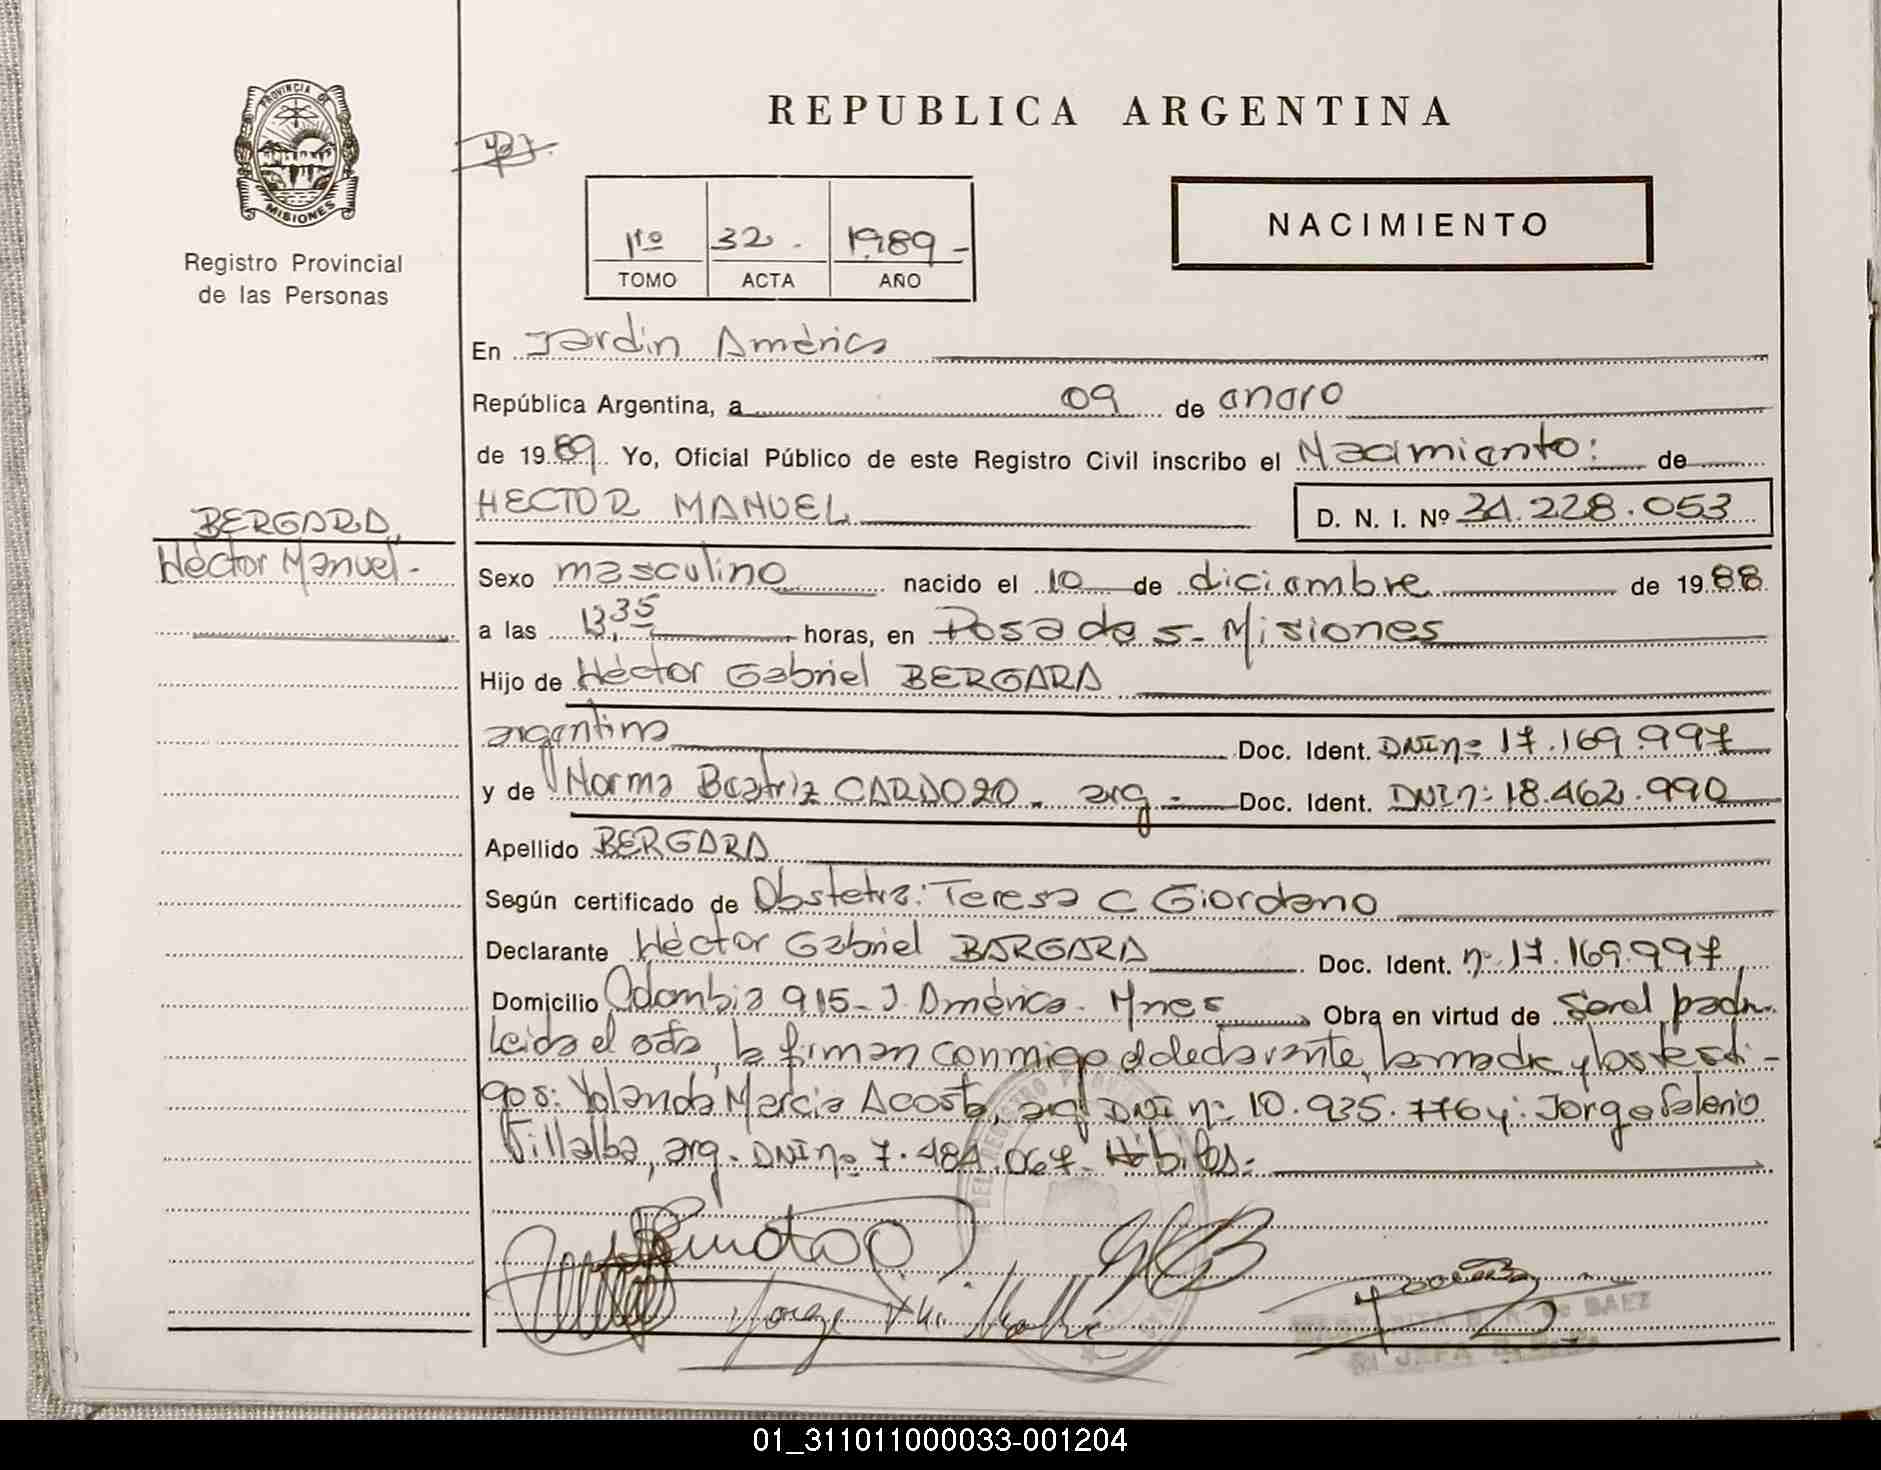 PROVINCIA DE
MISIONES
Registro Provincial
de las Personas
BERGARA,
Héctor Manuel.-
REPUBLICA ARGENTINA
NACIMIENTO
1ro 32. 1989-
TOMO ACTA AÑO
En Jardín América
República Argentina, a 09 de enero
de 1989. Yo, Oficial Público de este Registro Civil inscribo el Nacimiento: de
HECTOR MANUEL D. N. I. Nº 34.228.053
Sexo masculino nacido el 10 de diciembre de 1988
a las 13,35 horas, en Posadas- Misiones
Hijo de Héctor Gabriel BERGARA
argentina Doc. Ident. DNI nº 17.169.997
y de Norma Beatriz CARDOZO. arg.- Doc. Ident. DNI nº 18.462.990
Apellido BERGARA
Según certificado de Obstetra: Teresa C Giordano
Declarante Héctor Gabriel BARGARA Doc. Ident. nº 17.169.997
Domicilio Colombia 915- J. América- Mnes Obra en virtud de Ser el padre
Leida el acta, la firman conmigo el declarante, la madre y los testi-
gos: Yolanda Marcia Acosta, arg DNI nº 10.935.776 y: Jorge Salerio
Villalba, arg. DNI nº 7.484.067- Hábiles.-
Jorge Villalba
BAEZ
JEFA
01_311011000033-001204